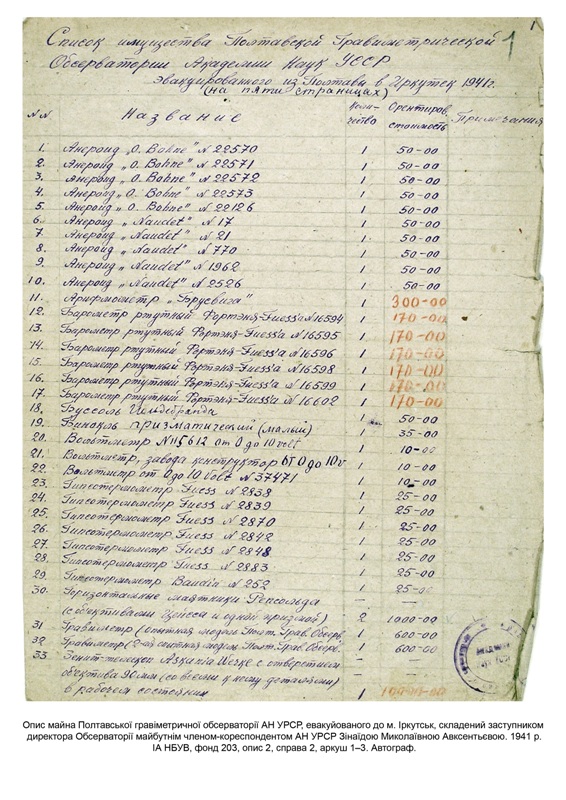 1
Список имущества Полтавской Гравиметрической
Обсерватории Академии Наук УССР
эвакуированного из Полтавы в Иркутск 1941 г.
(на пяти страницах)
NN Название Коли-чество Ориентиров. стоимость Примечания
1. Анероид „O. Bohne" N 22570 1 50-00
2. Анероид „O. Bohne" N 22571 1 50-00
3. Анероид „O. Bohne" N 22572 1 50-00
4. Анероид „O. Bohne" N 22573 1 50-00
5. Анероид „O. Bohne" N 22126 1 50-00
6. Анероид „Naudet" N 17 1 50-00
7. Анероид „Naudet" N 21 1 50-00
8. Анероид „Naudet" N 770 1 50-00
9. Анероид „Naudet" N 1962 1 50-00
10. Анероид „Naudet" N 2526 1 50-00
11. Арифмометр „Брунсвига" 1 300-00
12. Барометр ртутный Фортэня-Fuess'a N 16594 1 170-00
13. Барометр ртутный Фортэня-Fuess'a N 16595 1 170-00
14. Барометр ртутный Фортэня-Fuess'a N 16596 1 170-00
15. Барометр ртутный Фортэня-Fuess'a N 16598 1 170-00
16. Барометр ртутный Фортэня-Fuess'a N 16599 1 170-00
17. Барометр ртутный Фортэня-Fuess'a N 16602 1 170-00
18. Буссоль Гильдебранда 1 50-00
19. Бинокль призматический (малый) 1 35-00
20. Вольтметр N 115612 от 0 до 10 volt 1 10-00
21. Вольтметр, завода конструктор от 0 до 10 v 1 10-00
22. Вольтметр от 0 до 10 Volt N 37471 1 10-00
23. Гипсотермометр Fuess N 2838 1 25-00
24. Гипсотермометр Fuess N 2839 1 25-00
25. Гипсотермометр Fuess N 2870 1 25-00
26. Гипсотермометр Fuess N 2842 1 25-00
27. Гипсотермометр Fuess N 2848 1 25-00
28. Гипсотермометр Fuess N 2883 1 25-00
29. Гипсотермометр Baudin N 252 1 25-00
30. Горизонтальные маятники Репсольда — —
(с объективами Цейсса и одной призмой) 2 1000-00
31. Гравиметр (опытная модель Полт. Грав. Обсерв. 1 600-00
32. Гравиметр (2-ая опытная модель Полт. Грав. Обсерв. 1 600-00
33. Зенит-телескоп Askania Werke с отверстием — —
объектива 90 мм (со всеми к нему деталями)
в рабочем состоянии 1
Опис майна Полтавської гравіметричної обсерваторії АН УРСР, евакуйованого до м. Іркутськ, складений заступником
директора Обсерваторії майбутнім членом-кореспондентом АН УРСР Зінаїдою Миколаївною Авксентьєвою. 1941 р.
ІА НБУВ, фонд 203, опис 2, справа 2, аркуш 1–3. Автограф.